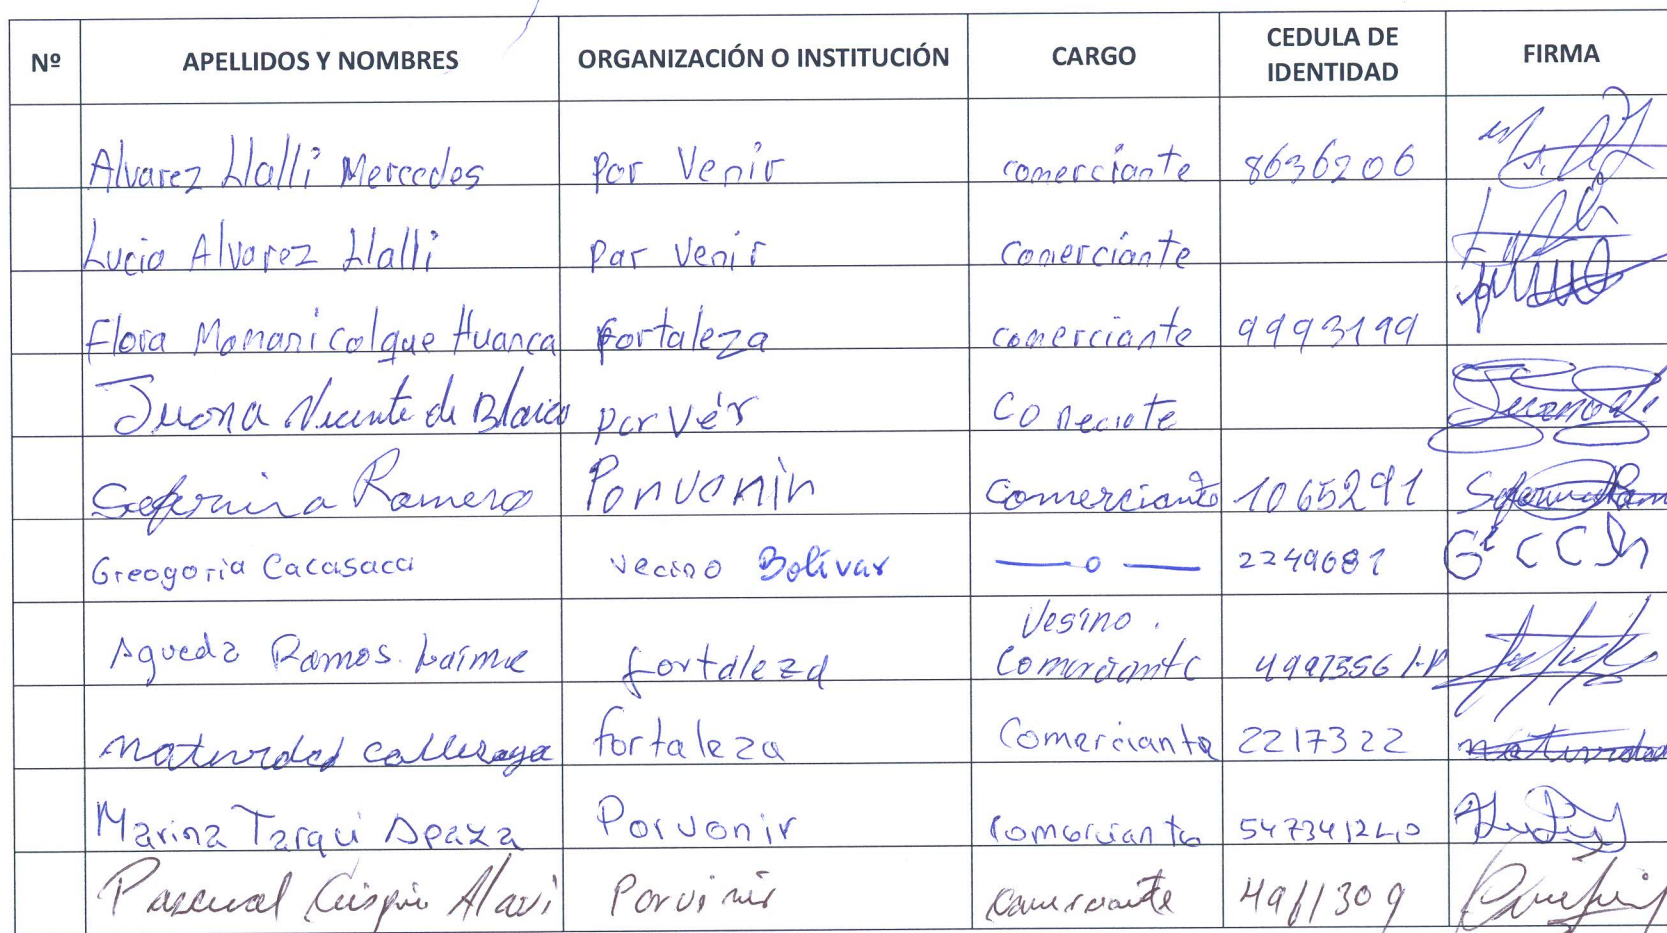 Nº APELLIDOS Y NOMBRES ORGANIZACIÓN O INSTITUCIÓN CARGO CEDULA DE IDENTIDAD FIRMA
Alvarez Llalli Mercedes Por Venir comerciante 8636206
Lucia Alvarez Llalli Par Venir comerciante
Flora Mamani colque Huanca fortaleza comerciante 9993199
Juana Vicente de Blanco por Vér Comeciate
Seferina Romero Porvenir Comerciante 1065291
Greogoria Cacasaca vecino Bolívar — o — 2249681
Vesino.
Agueda Ramos Laime fortaleza Comerciante
natividad callisaya fortaleza Comerciante 2217322
Marina Tarqui Apaza Porvenir comerciante 5473412 L.P
Pascual Crispin Alavi Porvinir comerciante 4911309